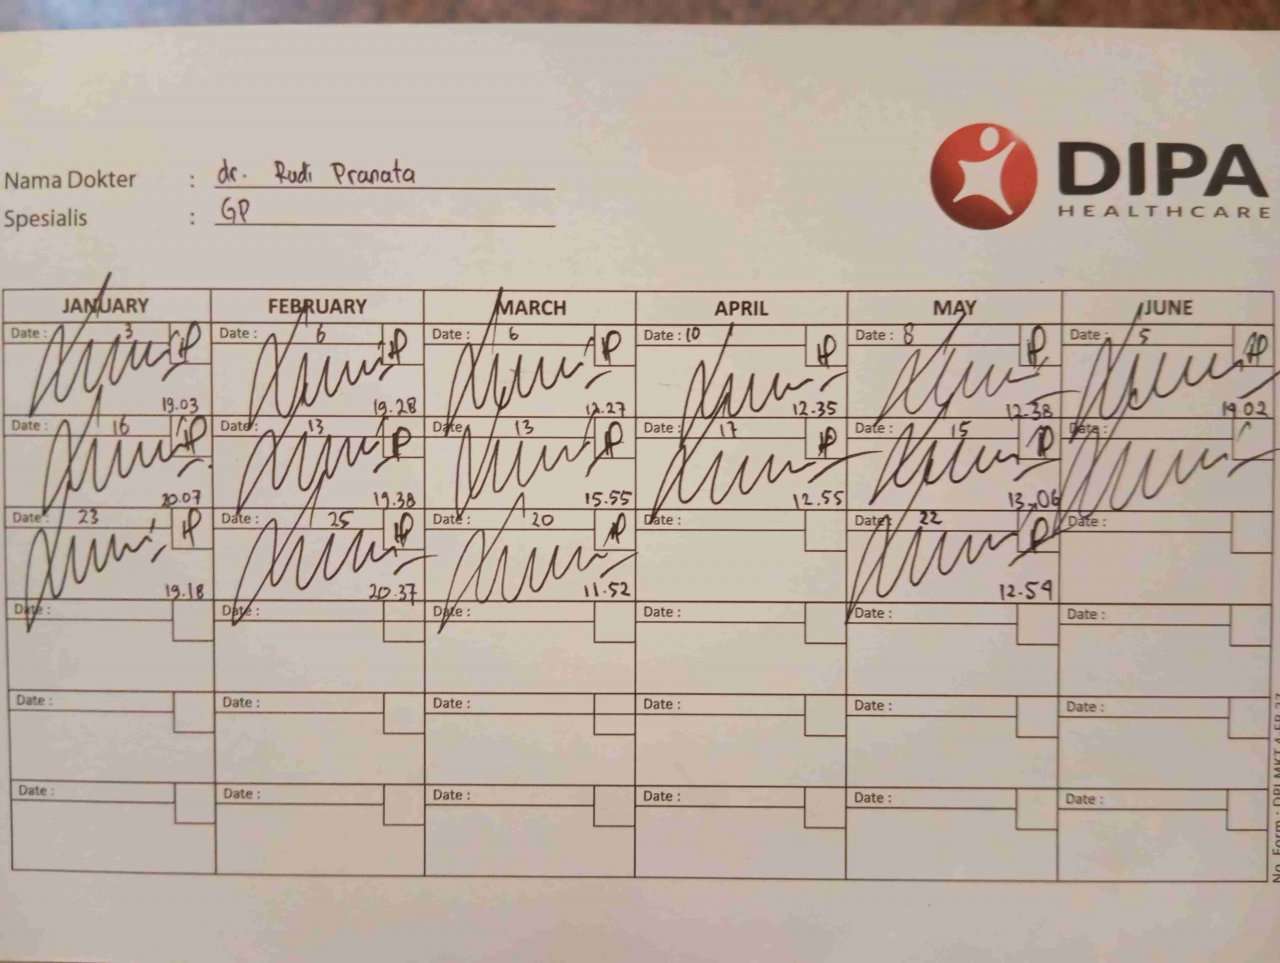 DIPA
HEALTHCARE
Nama Dokter : dr. Rudi Pranata
Spesialis : GP
JANUARY FEBRUARY MARCH APRIL MAY JUNE
Date : 3 Date : 6 Date : 6 Date : 10 Date : 8 Date : 5
19.03 19.28 12.27 12.35 12.38 19.02
Date : 16 Date : 13 Date 13 Date : 17 Date : 15 Date :
20.07 19.38 15.55 12.55 13.06
Date : 23 Date : 25 Date : 20 Date : Date : 22 Date :
19.18 20.37 11.52 12.59
Date : Date : Date : Date : Date : Date :
Date : Date : Date : Date : Date : Date :
Date : Date : Date : Date : Date : Date :
No. Form :